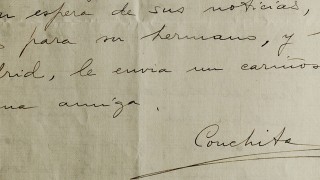 espera de sus noticias,
para su hermano, y
le envia un cariños
amiga.
Conchita